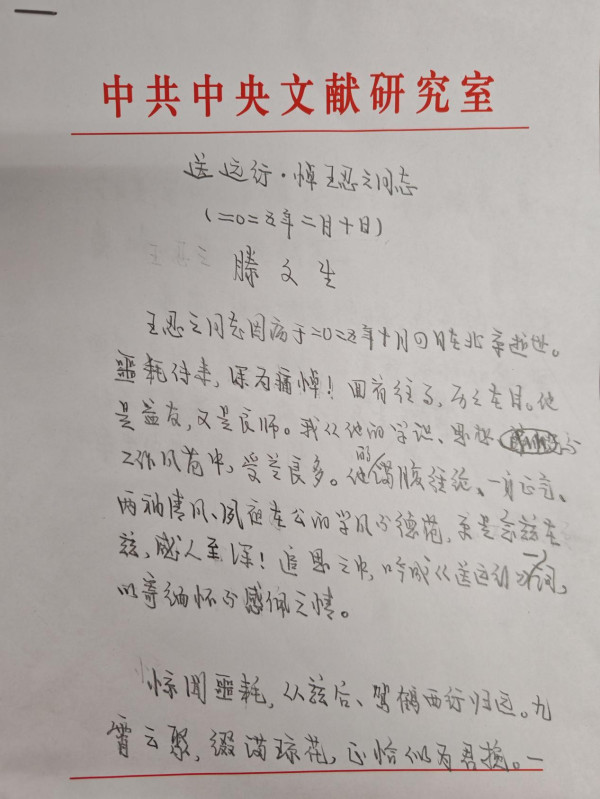 中共中央文献研究室
送远行·悼王忍之同志
（二〇二五年二月十日）
滕文生
王忍之同志因病于二〇二五年十月四日在北京逝世。
噩耗传来，深为痛悼！回首往事，历历在目。他
是益友，又是良师。我从他的学识、思想与
工作风范中，受益良多。他的满腹经纶、一身正气、
两袖清风、夙夜在公的学风与德范，更是念兹在
兹，感人至深！追思之中，吟成《送远行》一词，
以寄缅怀与感佩之情。
惊闻噩耗，从兹后、驾鹤西行归远。九
霄云聚，缀满琼花，正恰似为君挽。一